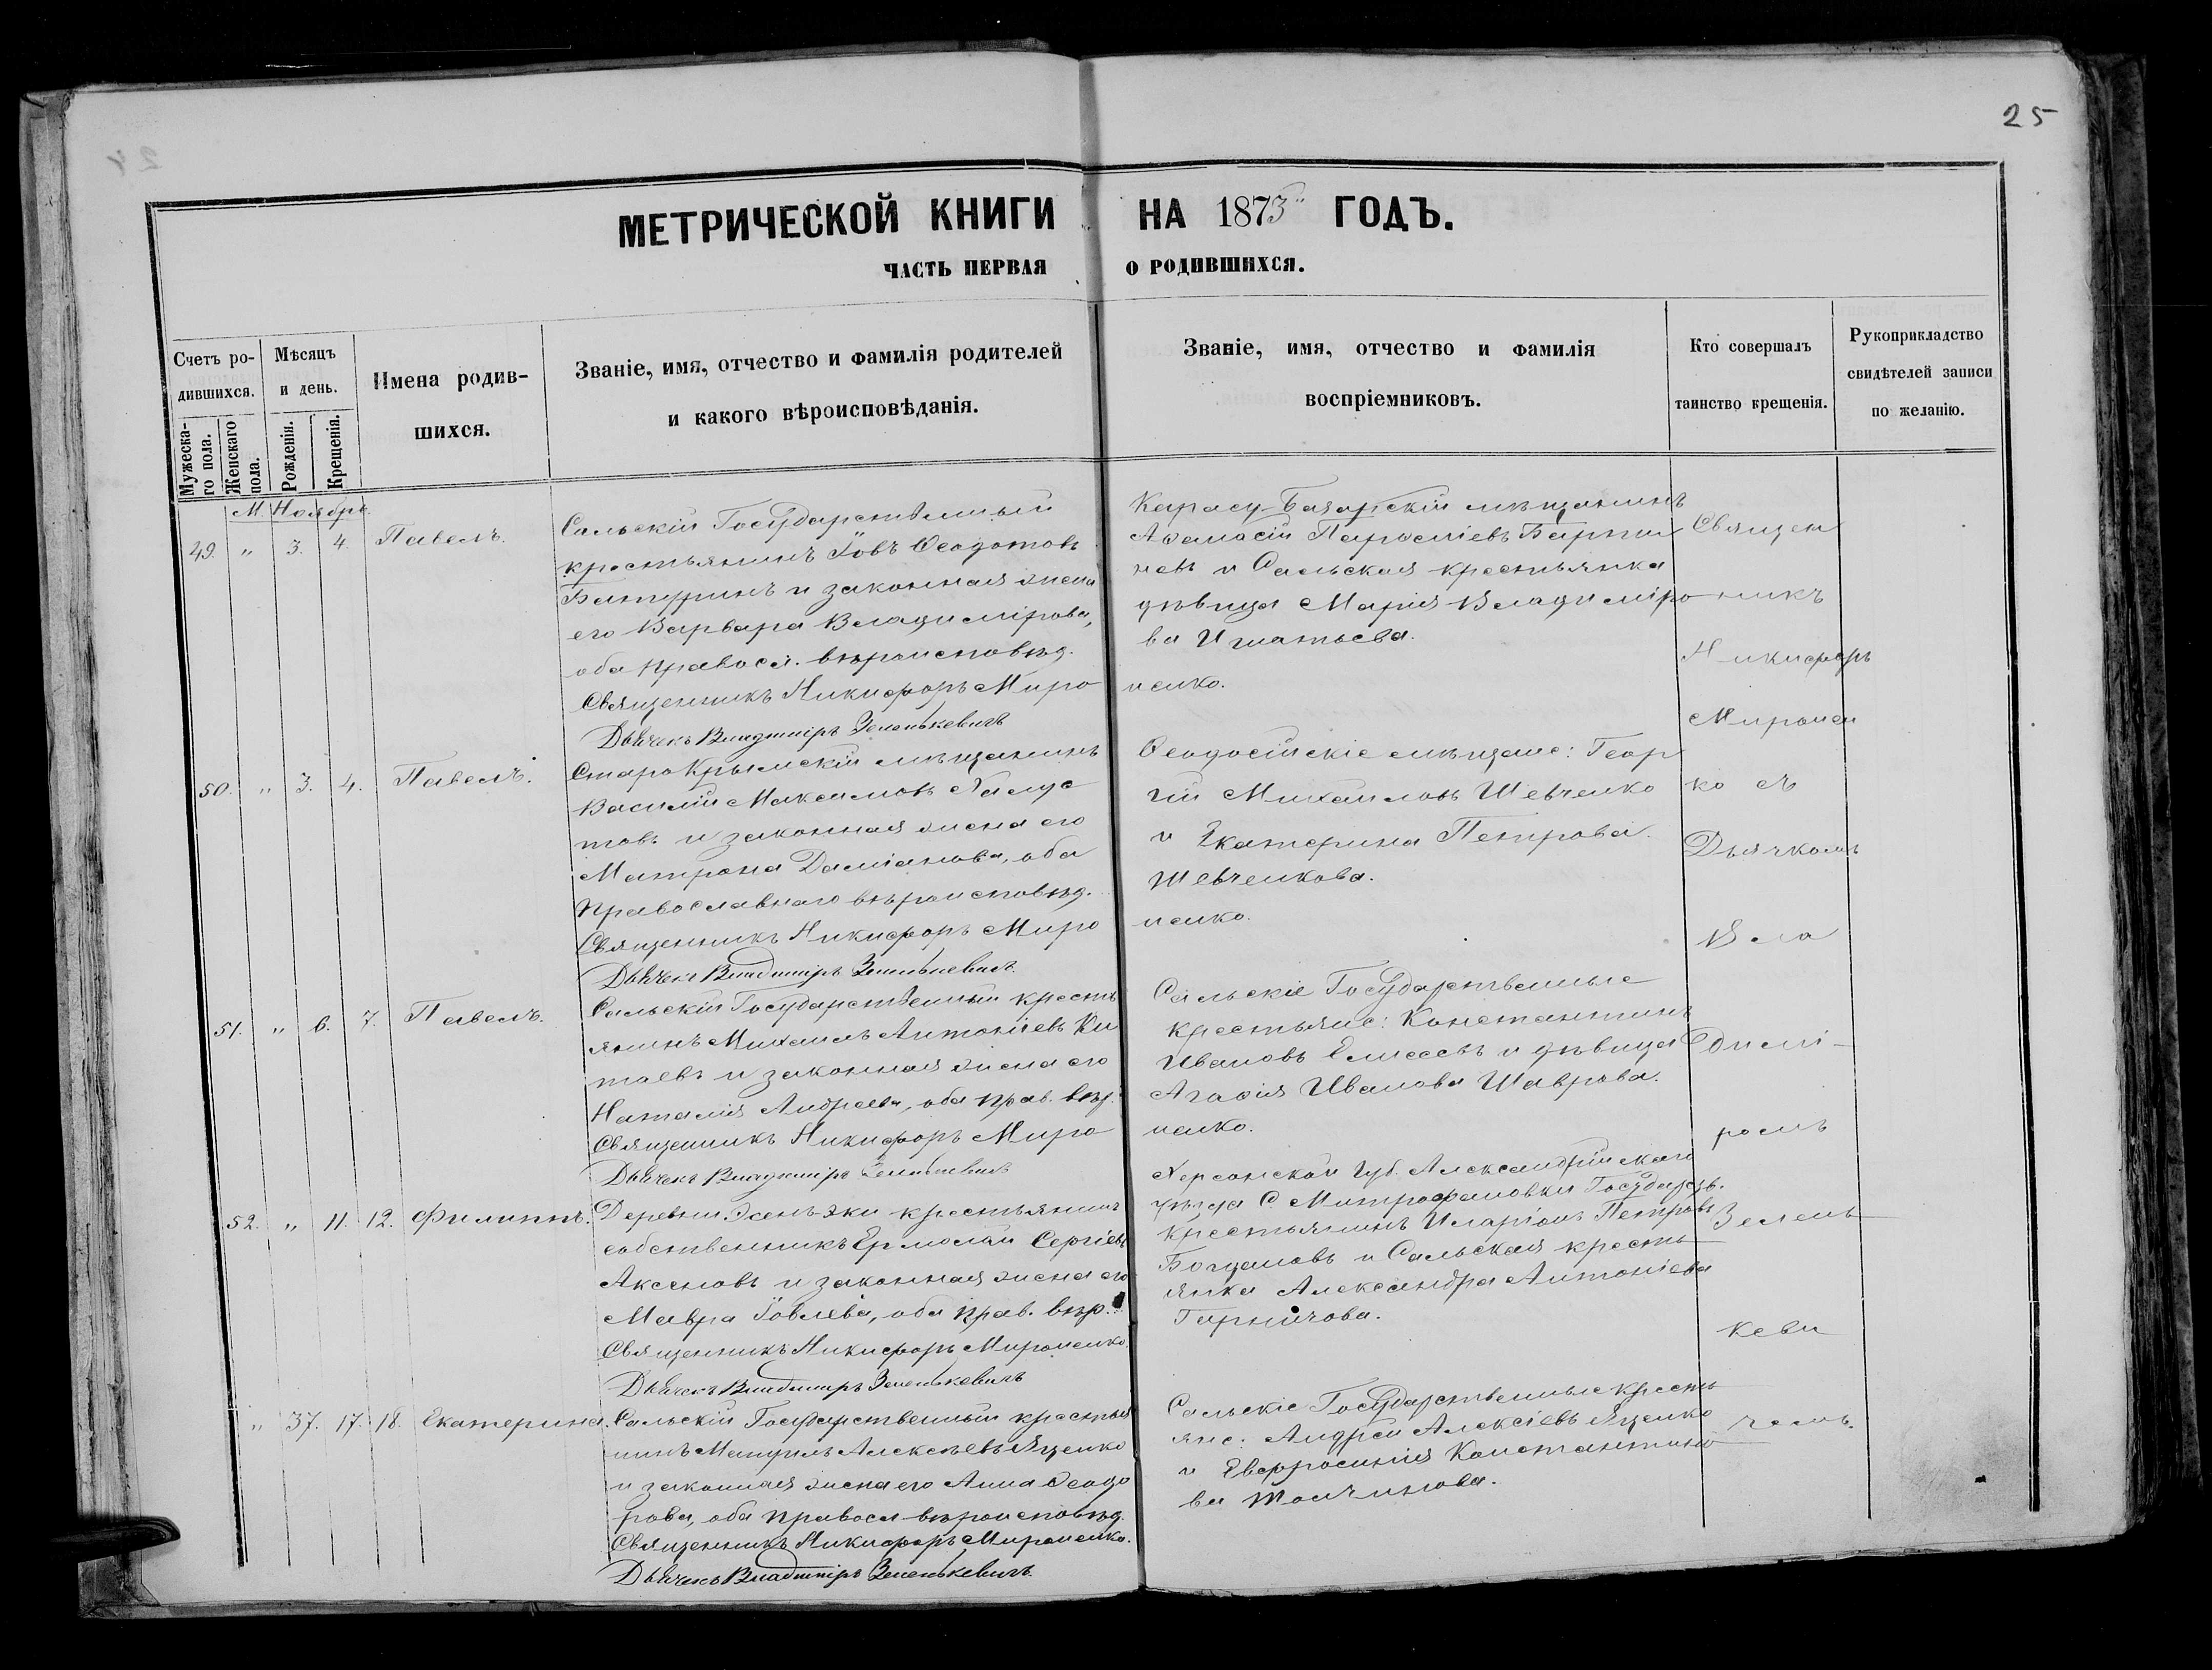 25
МЕТРИЧЕСКОЙ КНИГИ НА 1873 ГОДЪ.
ЧАСТЬ ПЕРВАЯ О РОДИВШИХСЯ.
Счетъ ро-
дившихся.
Мужеска-
го пола.
Женскаго
пола.
Мѣсяцъ
и день.
Рожденія.
Крещенія.
Имена родив-
шихся.
Званіе, имя, отчество и фамилія родителей
и какого вѣроисповѣданія.
Званіе, имя, отчество и фамилія
воспріемниковъ.
Кто совершалъ
таинство крещенія.
Рукоприкладство
свидѣтелей записи
по желанію.
М. Ноябрь.
49. " 3. 4. Павелъ.
Сальскій Государственный
крестьянинъ Іовъ Ѳеодотовъ
Батуринъ и законная жена
его Варвара Владимірова,
оба правосл. вѣроисповѣд.
Священникъ Никифоръ Миро
ненко.
Дьячекъ Владиміръ Зеленькевичъ
Карасу-Базарскій мѣщанинъ
Аѳанасій
невъ и Сальская крестьянка
дѣвица Марія Владиміро
ва Игнатьева.
50. " 3. 4. Павелъ.
СтароКрымскій мѣщанинъ
Василій Максимовъ Халус
товъ и законная жена его
Матрона Даміанова, оба
православнаго вѣроисповѣд.
Священникъ Никифоръ Миро
ненко.
Дьячекъ Владиміръ Зеленькевичъ.
Ѳеодосійскіе мѣщане: Геор
гій Михаиловъ Шевченко
и Екатерина Петрова
Шевченкова.
51. " 6. 7. Павелъ.
Сальскій Государственный кресть
янинъ Михаилъ Антоніевъ Ки
таевъ и законная жена его
Наталія Андреева, оба прав. вѣр.
Священникъ Никифоръ Миро
ненко.
Дьячекъ Владиміръ Зеленькевичъ
Сальскіе Государственные
крестьяне: Константинъ
Ивановъ Елисеевъ и дѣвица
Агафія Иванова Шаврова.
52. " 11. 12. Филиппъ.
Деревни Эсень-эки крестьянинъ
собственникъ Ермолай Сергіевъ
Аксеновъ и законная жена его
Мавра Іовлева, оба прав. вѣр.
Священникъ Никифоръ Мироненко.
Дьячекъ Владиміръ Зеленькевичъ
Херсонской Губ. Александрійскаго
уѣзда С. Митрофановки Государств.
крестьянинъ Иларіонъ Петровъ
Богдановъ и Сальская кресть
янка Александра Антоніева
" 37. 17. 18. Екатерина.
Сальскій Государственный крестья
нинъ Мануилъ Алексѣевъ Яценко
и законная жена его Анна Ѳеодо
рова, оба правосл. вѣроисповѣд.
Священникъ Никифоръ Мироненко.
Дьячекъ Владиміръ Зеленькевичъ.
Сальскіе Государственные кресть
яне: Андрей Алексіевъ Яценко
и Евфросинія Константино
ва Толчинова.
Священ
никъ
Никифоръ
Миронен
ко съ
Дьячкомъ
Вла
димі-
ромъ
Зелень
кеви
чемъ.